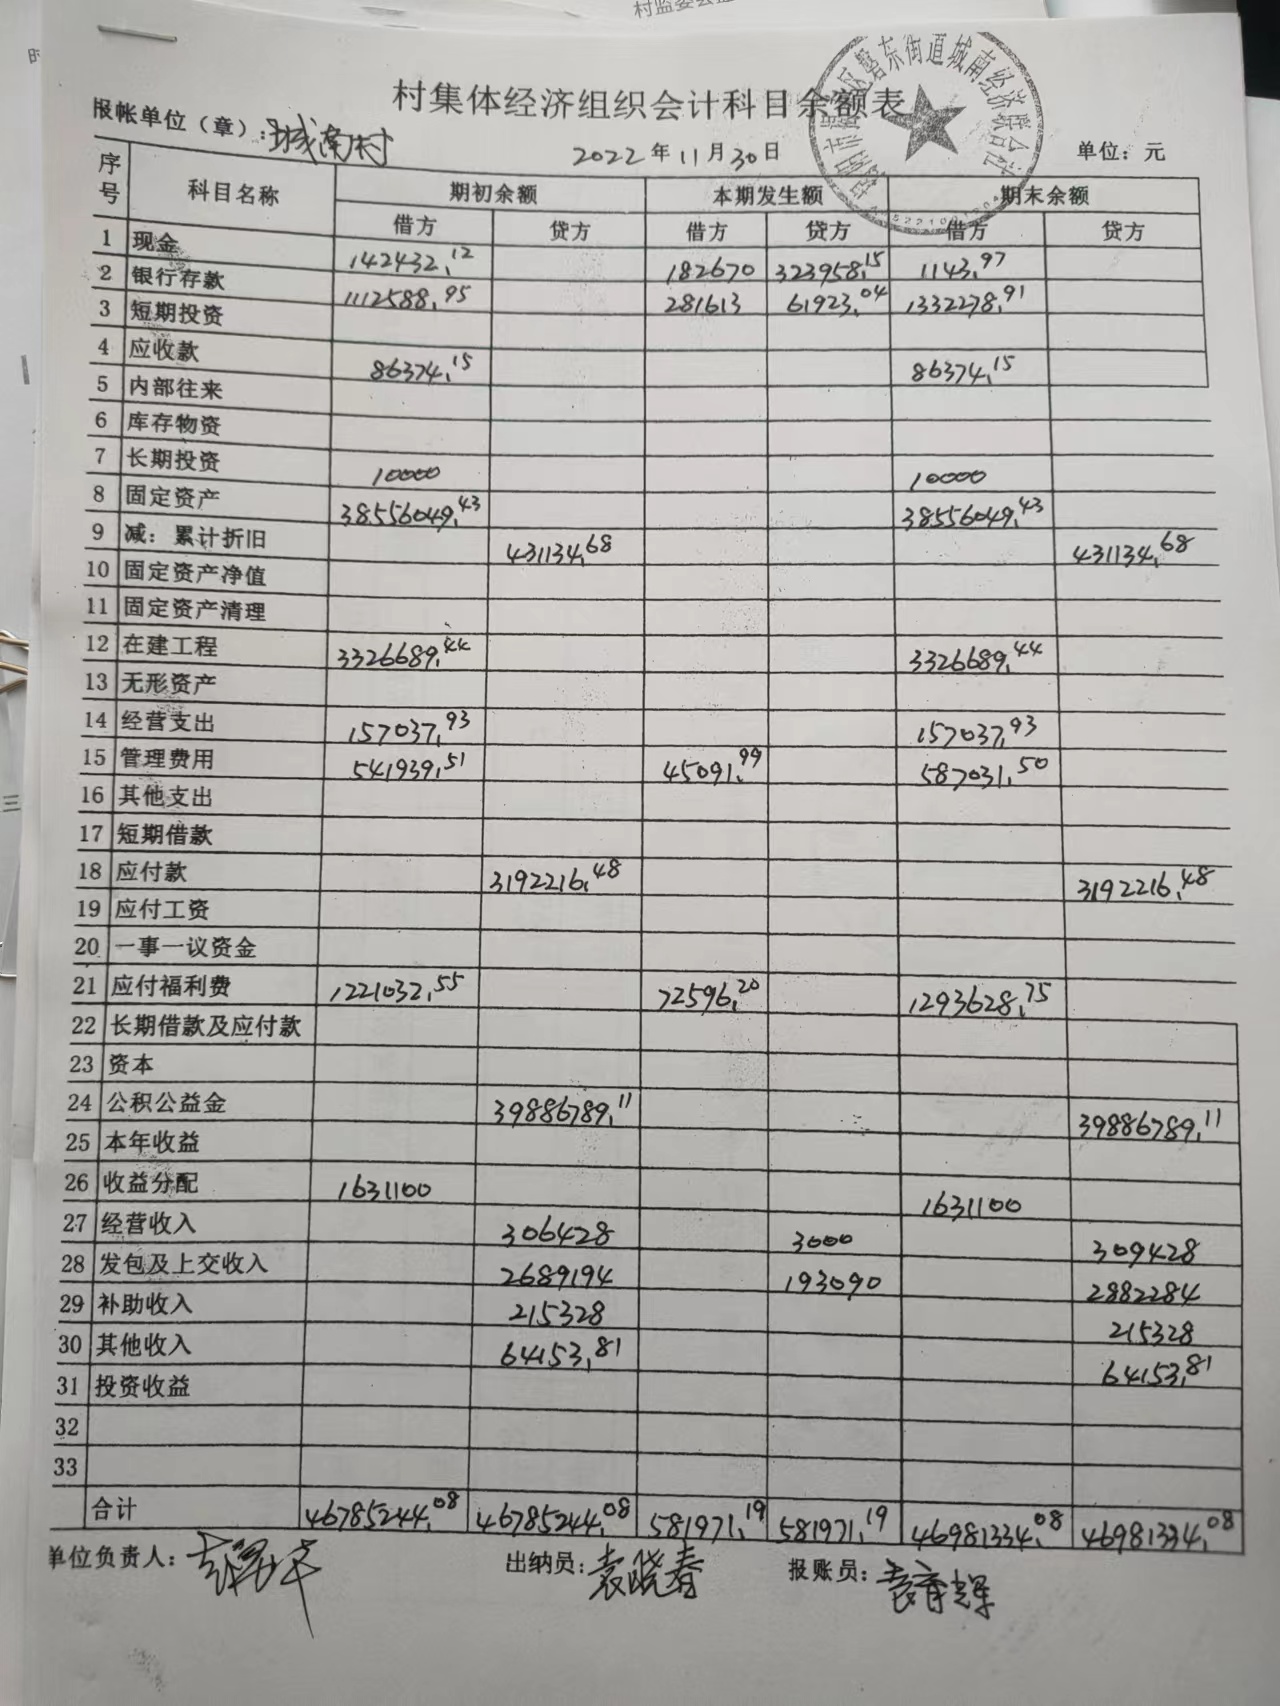 村监委会监
村集体经济组织会计科目余额表
报帐单位（章）：城南村 2022年11月30日 单位：元
磐东街道城南经济联合社
序号 科目名称 期初余额 本期发生额 期末余额
借方 贷方 借方 贷方 借方 贷方
1 现金 142432.12 182670 323958.15 1143.97
2 银行存款 1112588.95 281613 61923.04 1332278.91
3 短期投资
4 应收款 86374.15 86374.15
5 内部往来
6 库存物资
7 长期投资 10000 10000
8 固定资产 38556049.43 38556049.43
9 减：累计折旧 431134.68 431134.68
10 固定资产净值
11 固定资产清理
12 在建工程 3326689.44 3326689.44
13 无形资产
14 经营支出 157037.93 157037.93
15 管理费用 541939.51 45091.99 587031.50
16 其他支出
17 短期借款
18 应付款 3192216.48 3192216.48
19 应付工资
20 一事一议资金
21 应付福利费 1221032.55 72596.20 1293628.75
22 长期借款及应付款
23 资本
24 公积公益金 39886789.11 39886789.11
25 本年收益
26 收益分配 1631100 1631100
27 经营收入 306428 3000 309428
28 发包及上交收入 2689194 193090 2882284
29 补助收入 215328 215328
30 其他收入 64153.81 64153.81
31 投资收益
32
33
合计 46785244.08 46785244.08 581971.19 581971.19 46981334.08 46981334.08
单位负责人： 出纳员：袁晓春 报账员：袁育辉